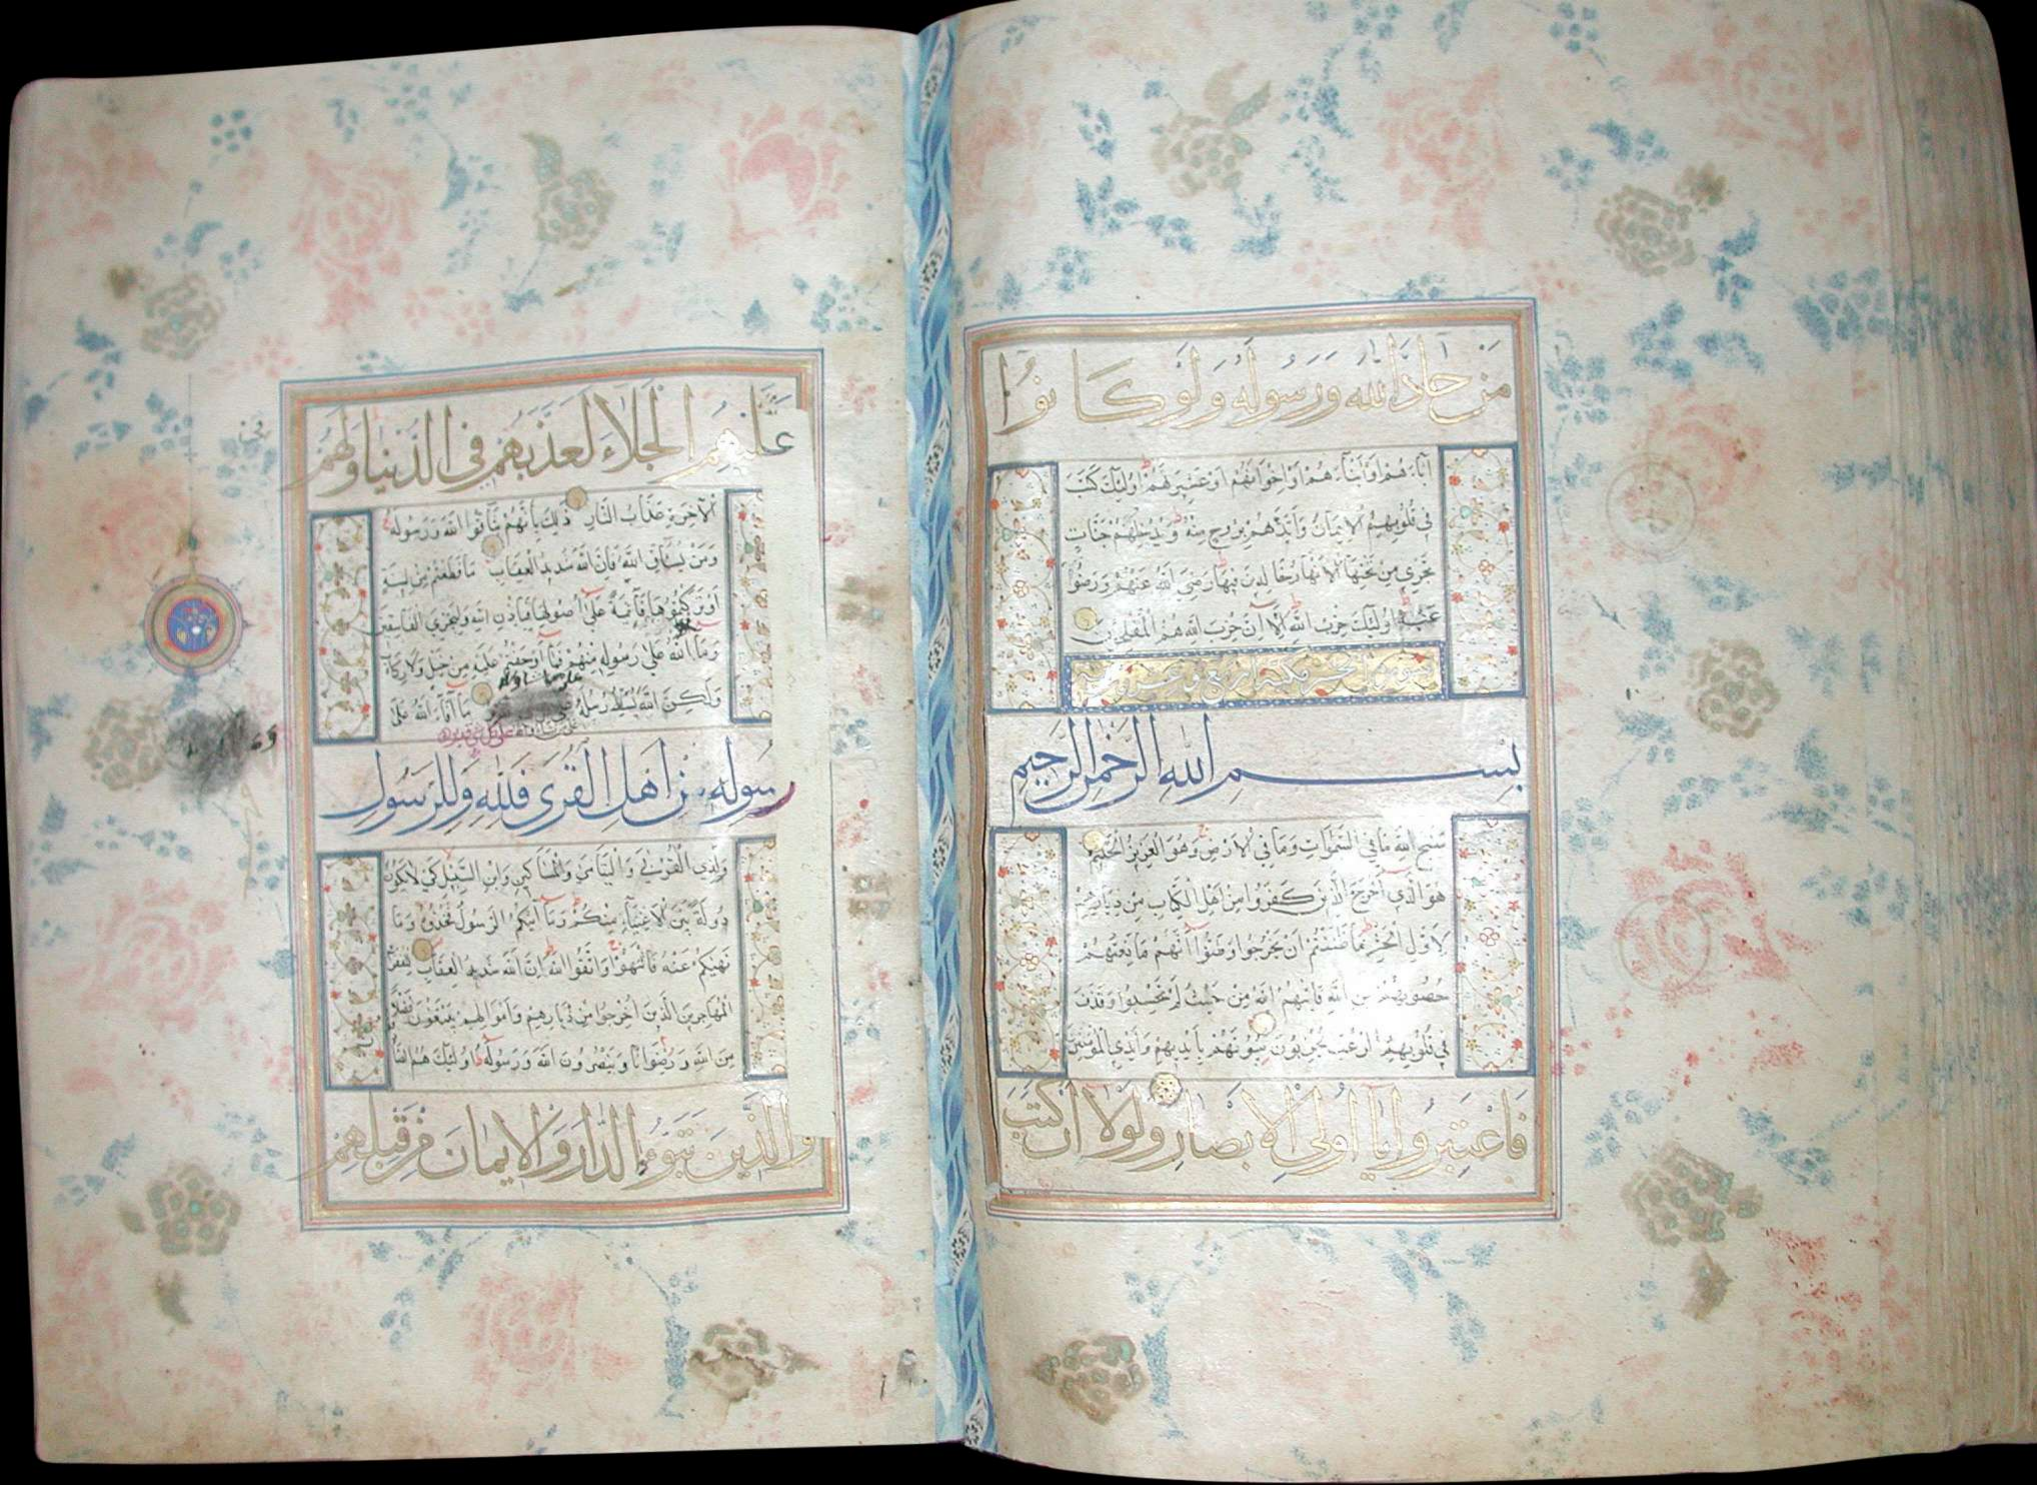 مَنْ حَآدَّ اللّٰه وَرَسُولَهُ وَلَوْ كَانُوا
آبَآءَهُمْ اَوْ اَبْنَآءَهُمْ اَوْ اِخْوَانَهُمْ اَوْ عَشِيرَتَهُمْ اُولٰئِكَ كَتَبَ
فِي قُلُوبِهِمُ الْاِيمَانَ وَاَيَّدَهُمْ بِرُوحٍ مِنْهُ وَيُدْخِلُهُمْ جَنَّاتٍ
تَجْرِي مِنْ تَحْتِهَا الْاَنْهَارُ خَالِدِينَ فِيهَا رَضِيَ اللّٰهُ عَنْهُمْ وَرَضُوا
عَنْهُ اُولٰئِكَ حِزْبُ اللّٰهِ اَلَآ اِنَّ حِزْبَ اللّٰهِ هُمُ الْمُفْلِحُونَ
سورة الحشر
بِسْمِ اللّٰهِ الرَّحْمٰنِ الرَّحِيمِ
سَبَّحَ لِلّٰهِ مَا فِي السَّمٰوَاتِ وَمَا فِي الْاَرْضِ وَهُوَ الْعَزِيزُ الْحَكِيمُ
هُوَ الَّذِي اَخْرَجَ الَّذِينَ كَفَرُوا مِنْ اَهْلِ الْكِتَابِ مِنْ دِيَارِهِمْ
لِاَوَّلِ الْحَشْرِ مَا ظَنَنْتُمْ اَنْ يَخْرُجُوا وَظَنُّوا اَنَّهُمْ مَانِعَتُهُمْ
حُصُونُهُمْ مِنَ اللّٰهِ فَاَتٰيهُمُ اللّٰهُ مِنْ حَيْثُ لَمْ يَحْتَسِبُوا وَقَذَفَ
فِي قُلُوبِهِمُ الرُّعْبَ يُخْرِبُونَ بُيُوتَهُمْ بِاَيْدِيهِمْ وَاَيْدِي الْمُؤْمِنِينَ
فَاعْتَبِرُوا يَآ اُولِي الْاَبْصَارِ وَلَوْلَآ اَنْ كَتَبَ
عَلَيْهِمُ الْجَلَآءَ لَعَذَّبَهُمْ فِي الدُّنْيَا وَلَهُمْ
الْآخِرَةِ عَذَابُ النَّارِ ذٰلِكَ بِاَنَّهُمْ شَآقُّوا اللّٰهَ وَرَسُولَهُ
وَمَنْ يُشَآقِّ اللّٰهَ فَاِنَّ اللّٰهَ شَدِيدُ الْعِقَابِ مَا قَطَعْتُمْ مِنْ لِينَةٍ
اَوْ تَرَكْتُمُوهَا قَآئِمَةً عَلٰى اُصُولِهَا فَبِاِذْنِ اللّٰهِ وَلِيُخْزِيَ الْفَاسِقِينَ
وَمَآ اللّٰهُ عَلٰى رَسُولِهِ مِنْهُمْ فَمَآ اَوْجَفْتُمْ عَلَيْهِ مِنْ خَيْلٍ وَلَا رِكَابٍ
وَلٰكِنَّ اللّٰهَ يُسَلِّطُ رُسُلَهُ مَآ اَفَآءَ اللّٰهُ عَلٰى
على كل شيء قدير
رَسُولِهِ مِنْ اَهْلِ الْقُرٰى فَلِلّٰهِ وَلِلرَّسُولِ
وَلِذِي الْقُرْبٰى وَالْيَتَامٰى وَالْمَسَاكِينِ وَابْنِ السَّبِيلِ كَيْ لَا يَكُونَ
دُولَةً بَيْنَ الْاَغْنِيَآءِ مِنْكُمْ وَمَآ اٰتٰيكُمُ الرَّسُولُ فَخُذُوهُ وَمَا
نَهٰيكُمْ عَنْهُ فَانْتَهُوا وَاتَّقُوا اللّٰهَ اِنَّ اللّٰهَ شَدِيدُ الْعِقَابِ لِلْفُقَرَ
الْمُهَاجِرِينَ الَّذِينَ اُخْرِجُوا مِنْ دِيَارِهِمْ وَاَمْوَالِهِمْ يَبْتَغُونَ فَضْلًا
مِنَ اللّٰهِ وَرِضْوَانًا وَيَنْصُرُونَ اللّٰهَ وَرَسُولَهُ اُولٰئِكَ هُمُ
وَالَّذِينَ تَبَوَّؤُا الدَّارَ وَالْاِيمَانَ مِنْ قَبْلِهِمْ